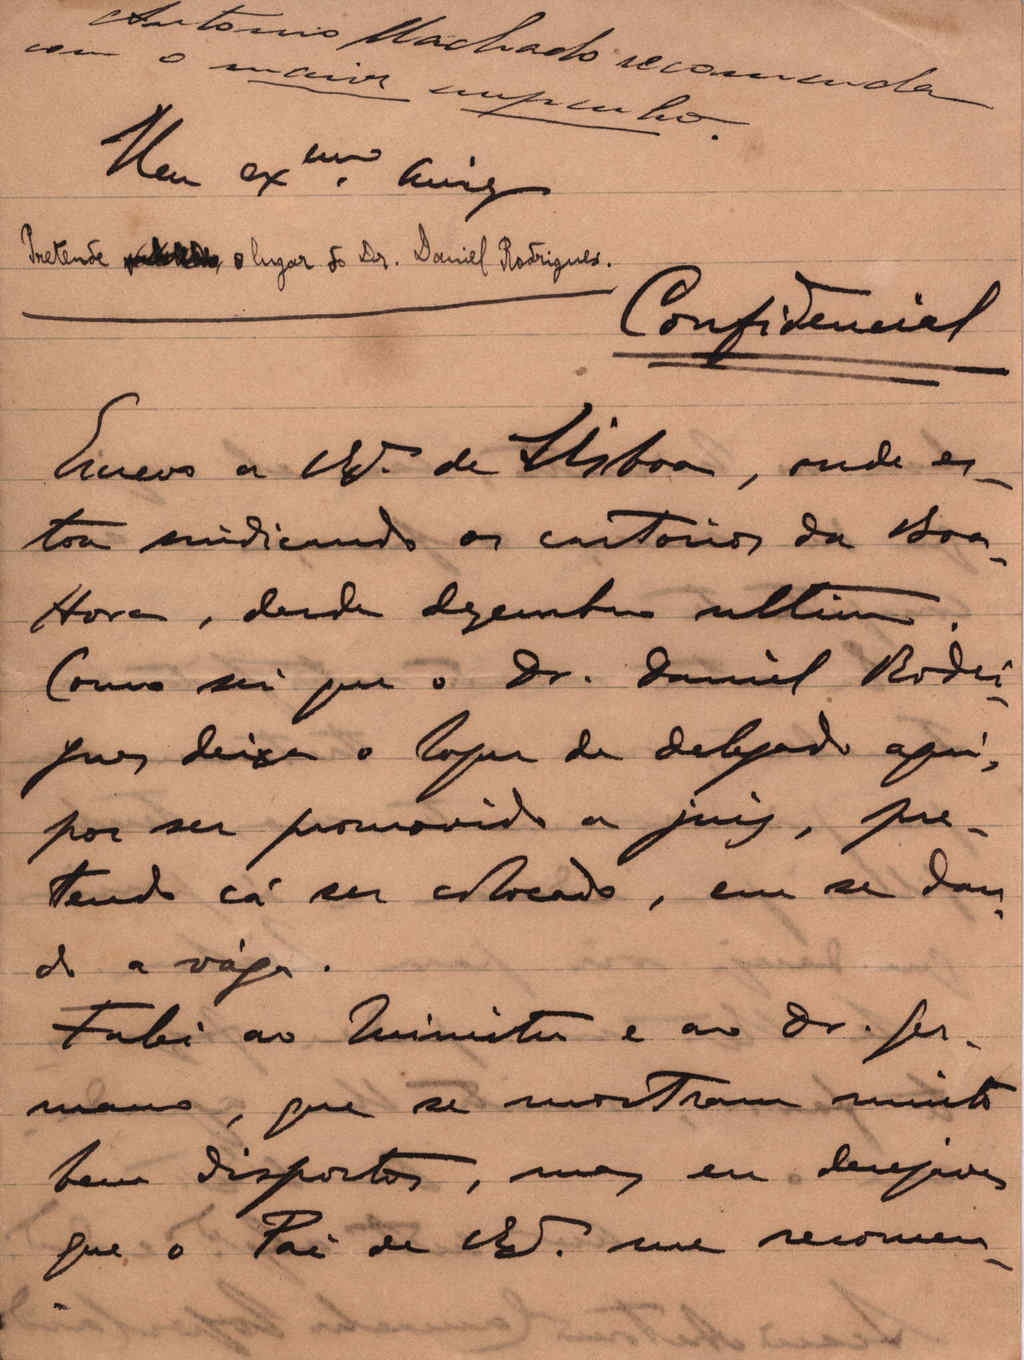 Antonio Machado recomenda
com o maior empenho.
Meu exmo. amigo
Pretende o lugar do Dr. Daniel Rodrigues.
Confidencial
Escrevo a V. de Lisboa, onde es-
tou sindicando os cartorios da Boa-
Hora, desde dezembro ultimo.
Como sei que o Dr. Daniel Rodri-
gues deixa o logar de delegado aqui,
por ser promovido a juiz, pre-
tendo cá ser colocado, em se dan-
do a vága.
Falei ao Ministro e ao Dr. Ger-
mano, que se mostram muito
bem dispostos, mas eu desejava
que o Pai de V. me recomen-